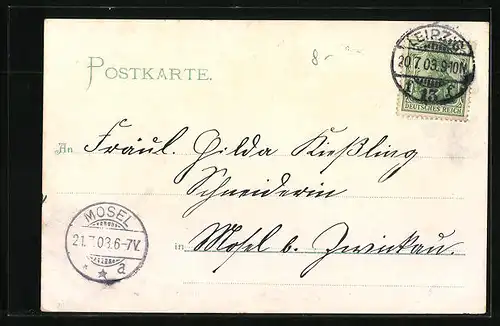 8-
LEIPZIG
20.7.03.9-10N.
13.
DEUTSCHES REICH
POSTKARTE.
An Fräul. Hilda Kießling
Schneiderin
in Mosel b. Zwickau.
MOSEL
21.7.03.6-7V.
* * a